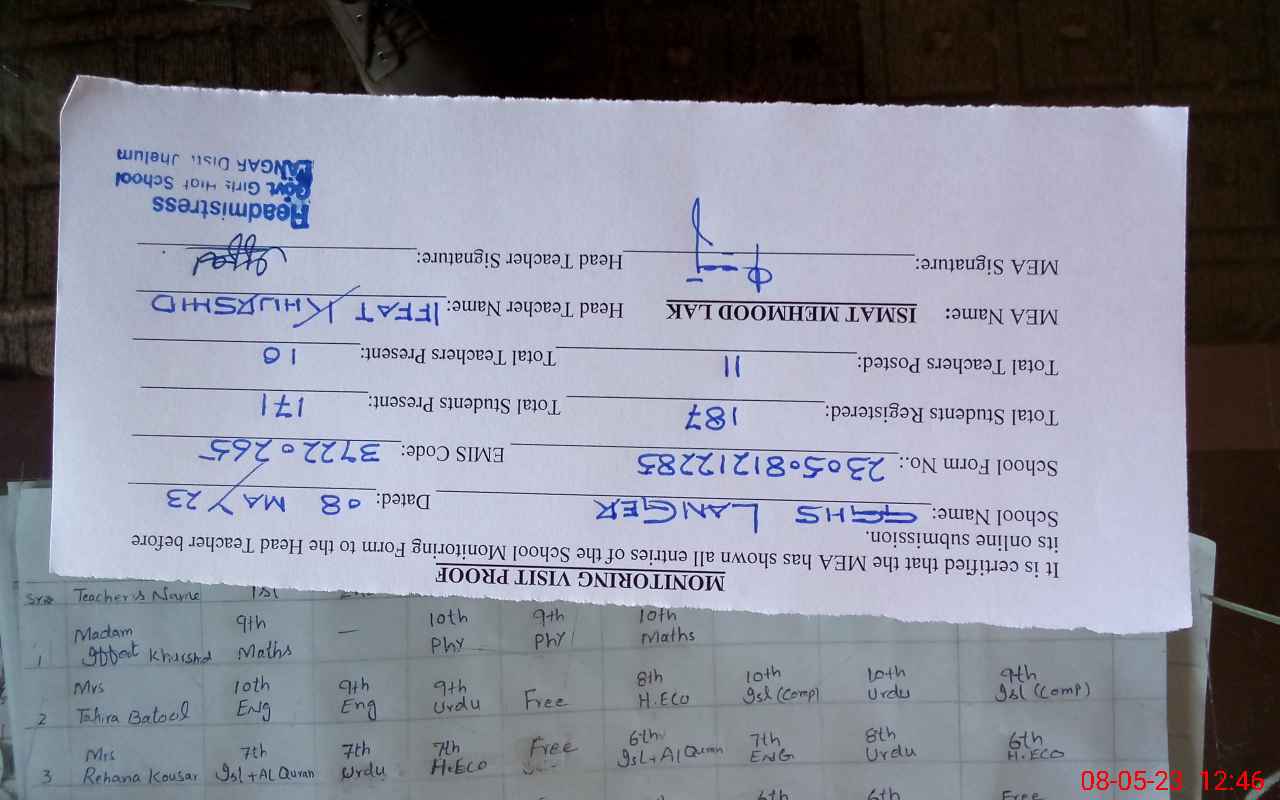 MONITORING VISIT PROOF
It is certified that the MEA has shown all entries of the School Monitoring Form to the Head Teacher before
its online submission.
School Name: GGHS LANGER Dated: 08 MAY 23
School Form No.: 230508121212285 EMIS Code: 37220265
Total Students Registered: 187 Total Students Present: 171
Total Teachers Posted: 11 Total Teachers Present: 10
MEA Name: ISMAT MEHMOOD LAK Head Teacher Name: IFFAT KHURSHID
MEA Signature: Head Teacher Signature:
Headmistress
Govt. Girls High School
LANGAR Distt. Jhelum
Sr# Teacher's Name 1st
Madam 9th — 10th 9th 10th
1 Iffat Khurshid Maths Phy Phy Maths
Mrs 10th 9th 9th Free 8th 10th 10th 9th
2 Tahira Batool Eng Eng Urdu H.Eco Isl (Comp) Urdu Isl (Comp)
Mrs 7th 7th 7th Free 6th 7th 8th 6th
3 Rehana Kousar Isl + Al Quran Urdu H.Eco Isl + Al Quran ENG Urdu H.Eco
6th 6th Free
08-05-23 12:46